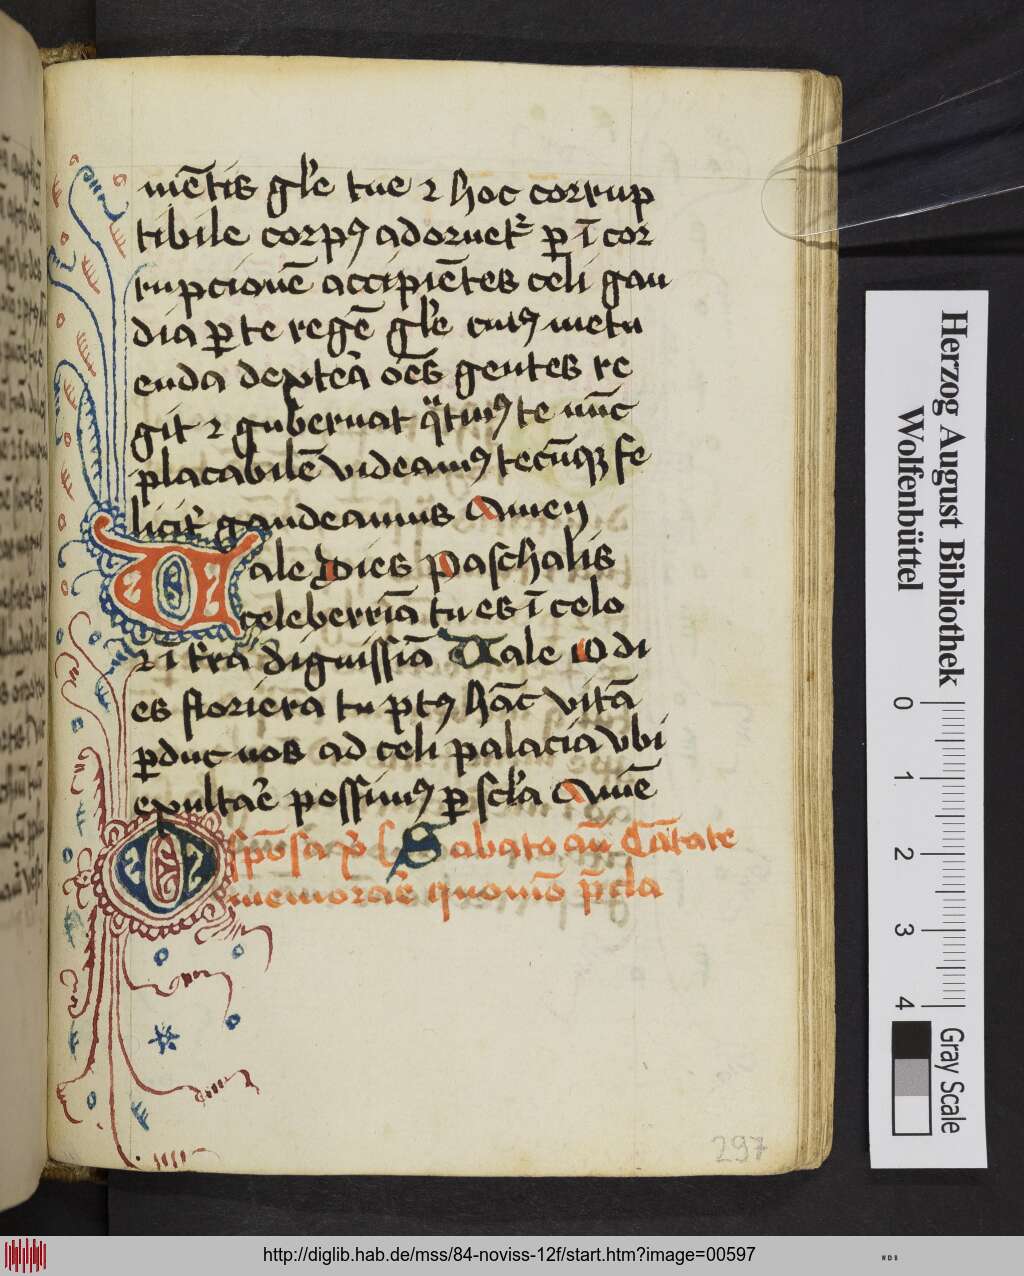 mētis gl'e tue ⁊ hoc corrup
tibile corpꝰ adornet᷑ ꝑ ī cor
rupcionē accipiētes celi gau
dia ꝑ te regē gl'e cuiꝰ metu
enda oēs gentes re
git ⁊ gubernat te nūc
placabilē videamꝰ tecūqꝫ fe
licit᷑ gaudeamus Amen
Uale dies paschalis
celeberriā tu es ī celo
⁊ ī t᷑ra dignissiā Uale o di
es floriera tu hāc vitā
ꝑduc nos ad celi palacia vbi
exulta᷑e possimꝰ ꝑ sc̄l'a Amē
Spōsa Sabato Cātate
memora᷑e
297
Herzog August Bibliothek
Wolfenbüttel
0 1 2 3 4
Gray Scale
http://diglib.hab.de/mss/84-noviss-12f/start.htm?image=00597